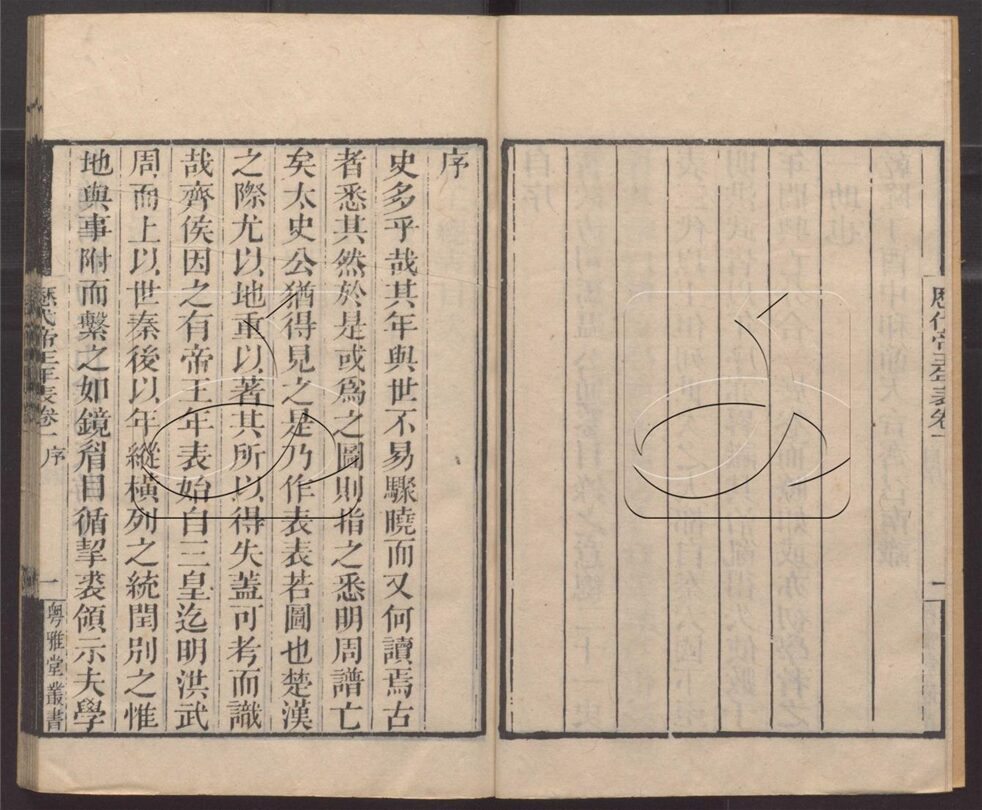 歷代帝王年表卷一
一
序
史多乎哉其年與世不易驟曉而又何讀焉古
者悉其然於是或爲之圖則指之悉明周譜亡
矣太史公猶得見之是乃作表表若圖也楚漢
之際尤以地重以著其所以得失蓋可考而識
哉齊侯因之有帝王年表始自三皇迄明洪武
周而上以世秦後以年縱橫列之統閏別之惟
地與事附而繫之如鏡眉目循挈裘領示夫學
歷代帝王年表卷一序
一
粵雅堂叢書